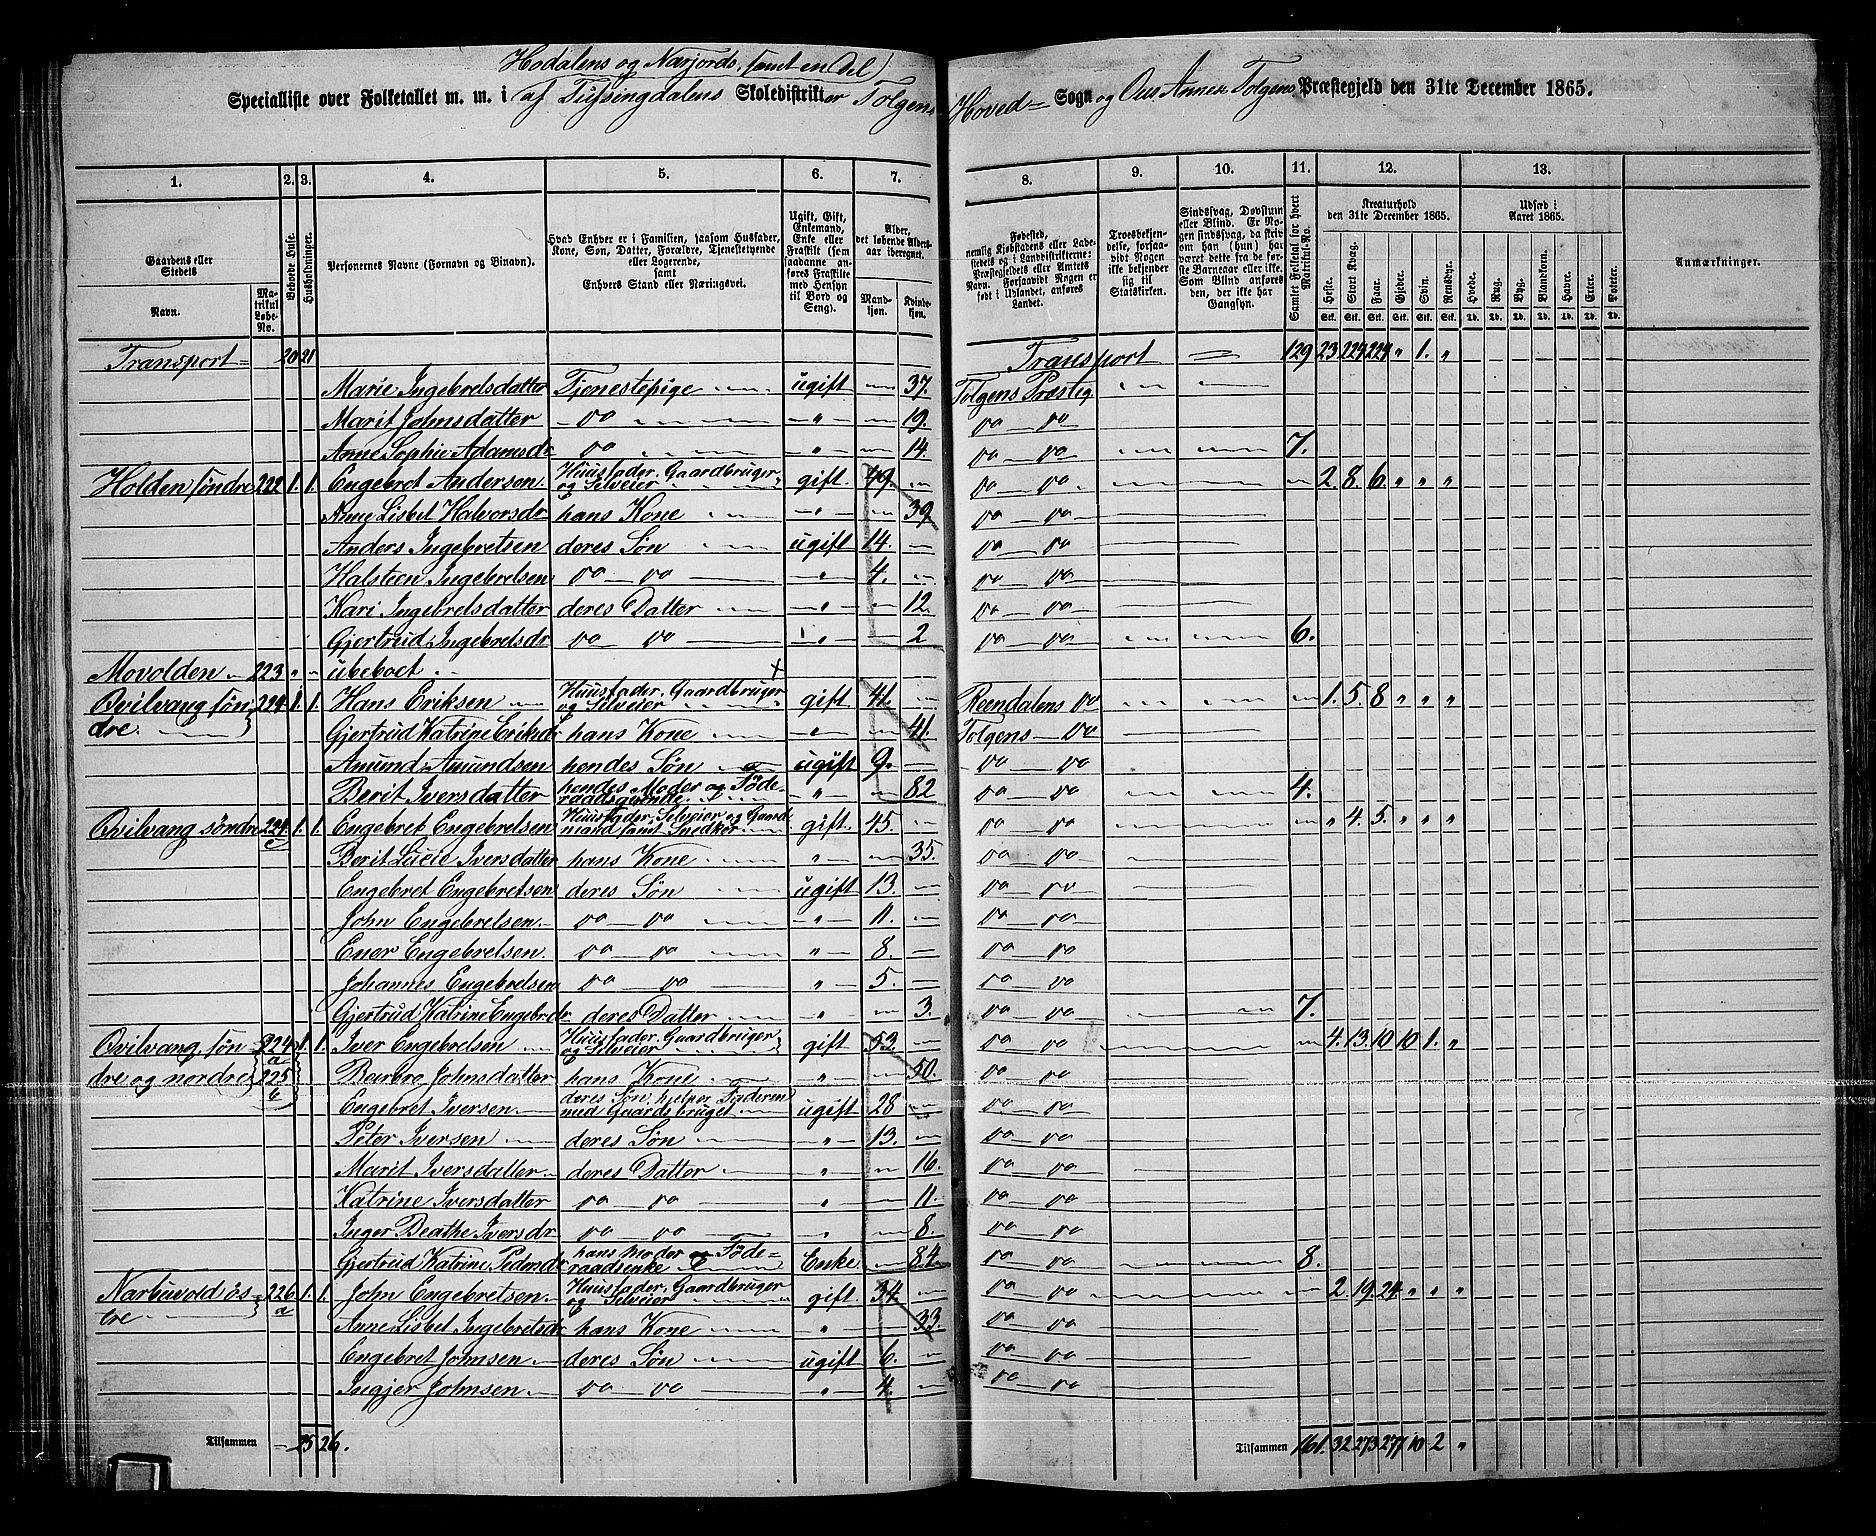 Hodalens og Narjords, samt en Del
Specialliste over Folketallet m. m. i af Tufsingdalens Skoledistrikter Tolgens Hoved- Sogn og Ous Annex Tolgens Præstegjeld den 31te December 1865.
1. 2. 3. 4. 5. 6. 7. 8. 9. 10. 11. 12. 13.
Gaardens eller Stedets
Navn.
Matrikul Løbe-No.
Beboede Huse.
Husholdninger.
Personernes Navne (Fornavn og Binavn).
Hvad Enhver er i Familien, saasom Husfader, Kone, Søn, Datter, Forældre, Tjenestetyende eller Logerende,
samt
Enhvers Stand eller Næringsvei.
Ugift, Gift, Enkemand, Enke eller Fraskilt (som saadanne anføres Fraskilte med Hensyn til Bord og Seng).
Alder, det løbende Aldersaar iberegnet.
Mandkjøn. Kvindekjøn.
Fødested,
nemlig Kjøbstadens eller Ladestedets eller i Landdistrikterne: Præstegjeldets eller Amtets Navn. Forsaavidt Nogen er født i Udlandet, anføres Landet.
Troesbekjendelse, forsaavidt Nogen ikke bekjender sig til Statskirken.
Sindssvag, Døvstum eller Blind. Er Nogen sindssvag, da forklares om han (hun) har været dette fra de første Barneaar eller ikke. Som Blind anføres den, der ikke har Gangsyn.
Samlet Folketal for hvert Matrikul-No.
Kreaturhold den 31te December 1865.
Heste. Stort Kvæg. Faar. Gjeder. Svin. Rensdyr.
Udsæd i Aaret 1865.
Hvede. Rug. Byg. Blandkorn. Havre. Erter. Poteter.
Stk. Stk. Stk. Stk. Stk. Stk. Td. Td. Td. Td. Td. Td. Td.
Anmærkninger.
Transport 20 21 Transport 129 23 224 224 " 1. "
Marie Ingebretsdatter Tjenestepige ugift 37. Tolgens Præstg
Marit Johnsdatter do " 19. do do
Anne Sophie Adamsdr do " 14. do do 7.
Holden søndre 222 1. 1. Engebret Andersen Huusfader, Gaardbruger og Selveier gift 49. do do 2. 8. 6. " " "
Anne Lisbet Halvorsdr hans Kone " 39 do do
Anders Ingebretsen deres Søn ugift 14. do do
Halsteen Ingebretsen do do " 4. do do
Kari Ingebretsdatter deres Datter " 12. do do
Gjertrud Ingebretsdr do do " 2 do do 6.
Movolden 223 " ubeboet
Qvilvang søndre 224 1. 1. Hans Eriksen Huusfader, Gaardbruger og Selveier gift 41. Reendalens do 1. 5. 8 " " "
Gjertrud Katrine Eriksdr hans Kone " 41. Tolgens do
Amund Amundsen hendes Søn ugift 9. do do
Berit Iversdatter hendes Moder og Føderaadsqvinde " 82 do do 4.
Qvilvang søndre 224 c 1. 1. Engebret Engebretsen Huusfader, Selveier og Gaardmand samt Snedker gift. 45. do do " 4. 5. " " "
Berit Lucie Iversdatter hans Kone " 35. do do
Engebret Engebretsen deres Søn ugift 13. do do
John Engebretsen do do " 11. do do
Ener Engebretsen do do " 8. do do
Johannes Engebretsen do do " 5. do do
Gjertrud Katrine Engebr.dr deres Datter " 3. do do 7.
Qvilvang søndre og nordre 224 a 225 b 1. 1. Iver Engebretsen Huusfader, Gaardbruger og Selveier gift 53. do do 4. 13. 10 10 1. "
Barbro Johnsdatter hans Kone " 50. do do
Engebret Iversen deres Søn, hjelper Faderen med Gaardsbruget ugift 28 do do
Peter Iversen deres Søn " 13. do do
Marit Iversdatter deres Datter " 16. do do
Katrine Iversdatter do do " 11. do do
Inger Beathe Iversdr do do " 8. do do
Gjertrud Katrine Pedersdr hans Moder og Føderaadsenke Enke 84. do do 8.
Narbuvold østre 226 a 1. 1. John Engebretsen Huusfader, Gaardbruger og Selveier gift. 34. do do 2. 19. 24 " " "
Anne Lisbet Ingebretsdr hans Kone " 33. do do
Engebret Johnsen deres Søn ugift 6. do do
Ingjer Johnsen do do " 4. do do
Tilsammen 25 26. Tilsammen 161. 32 273 277 10 2 "